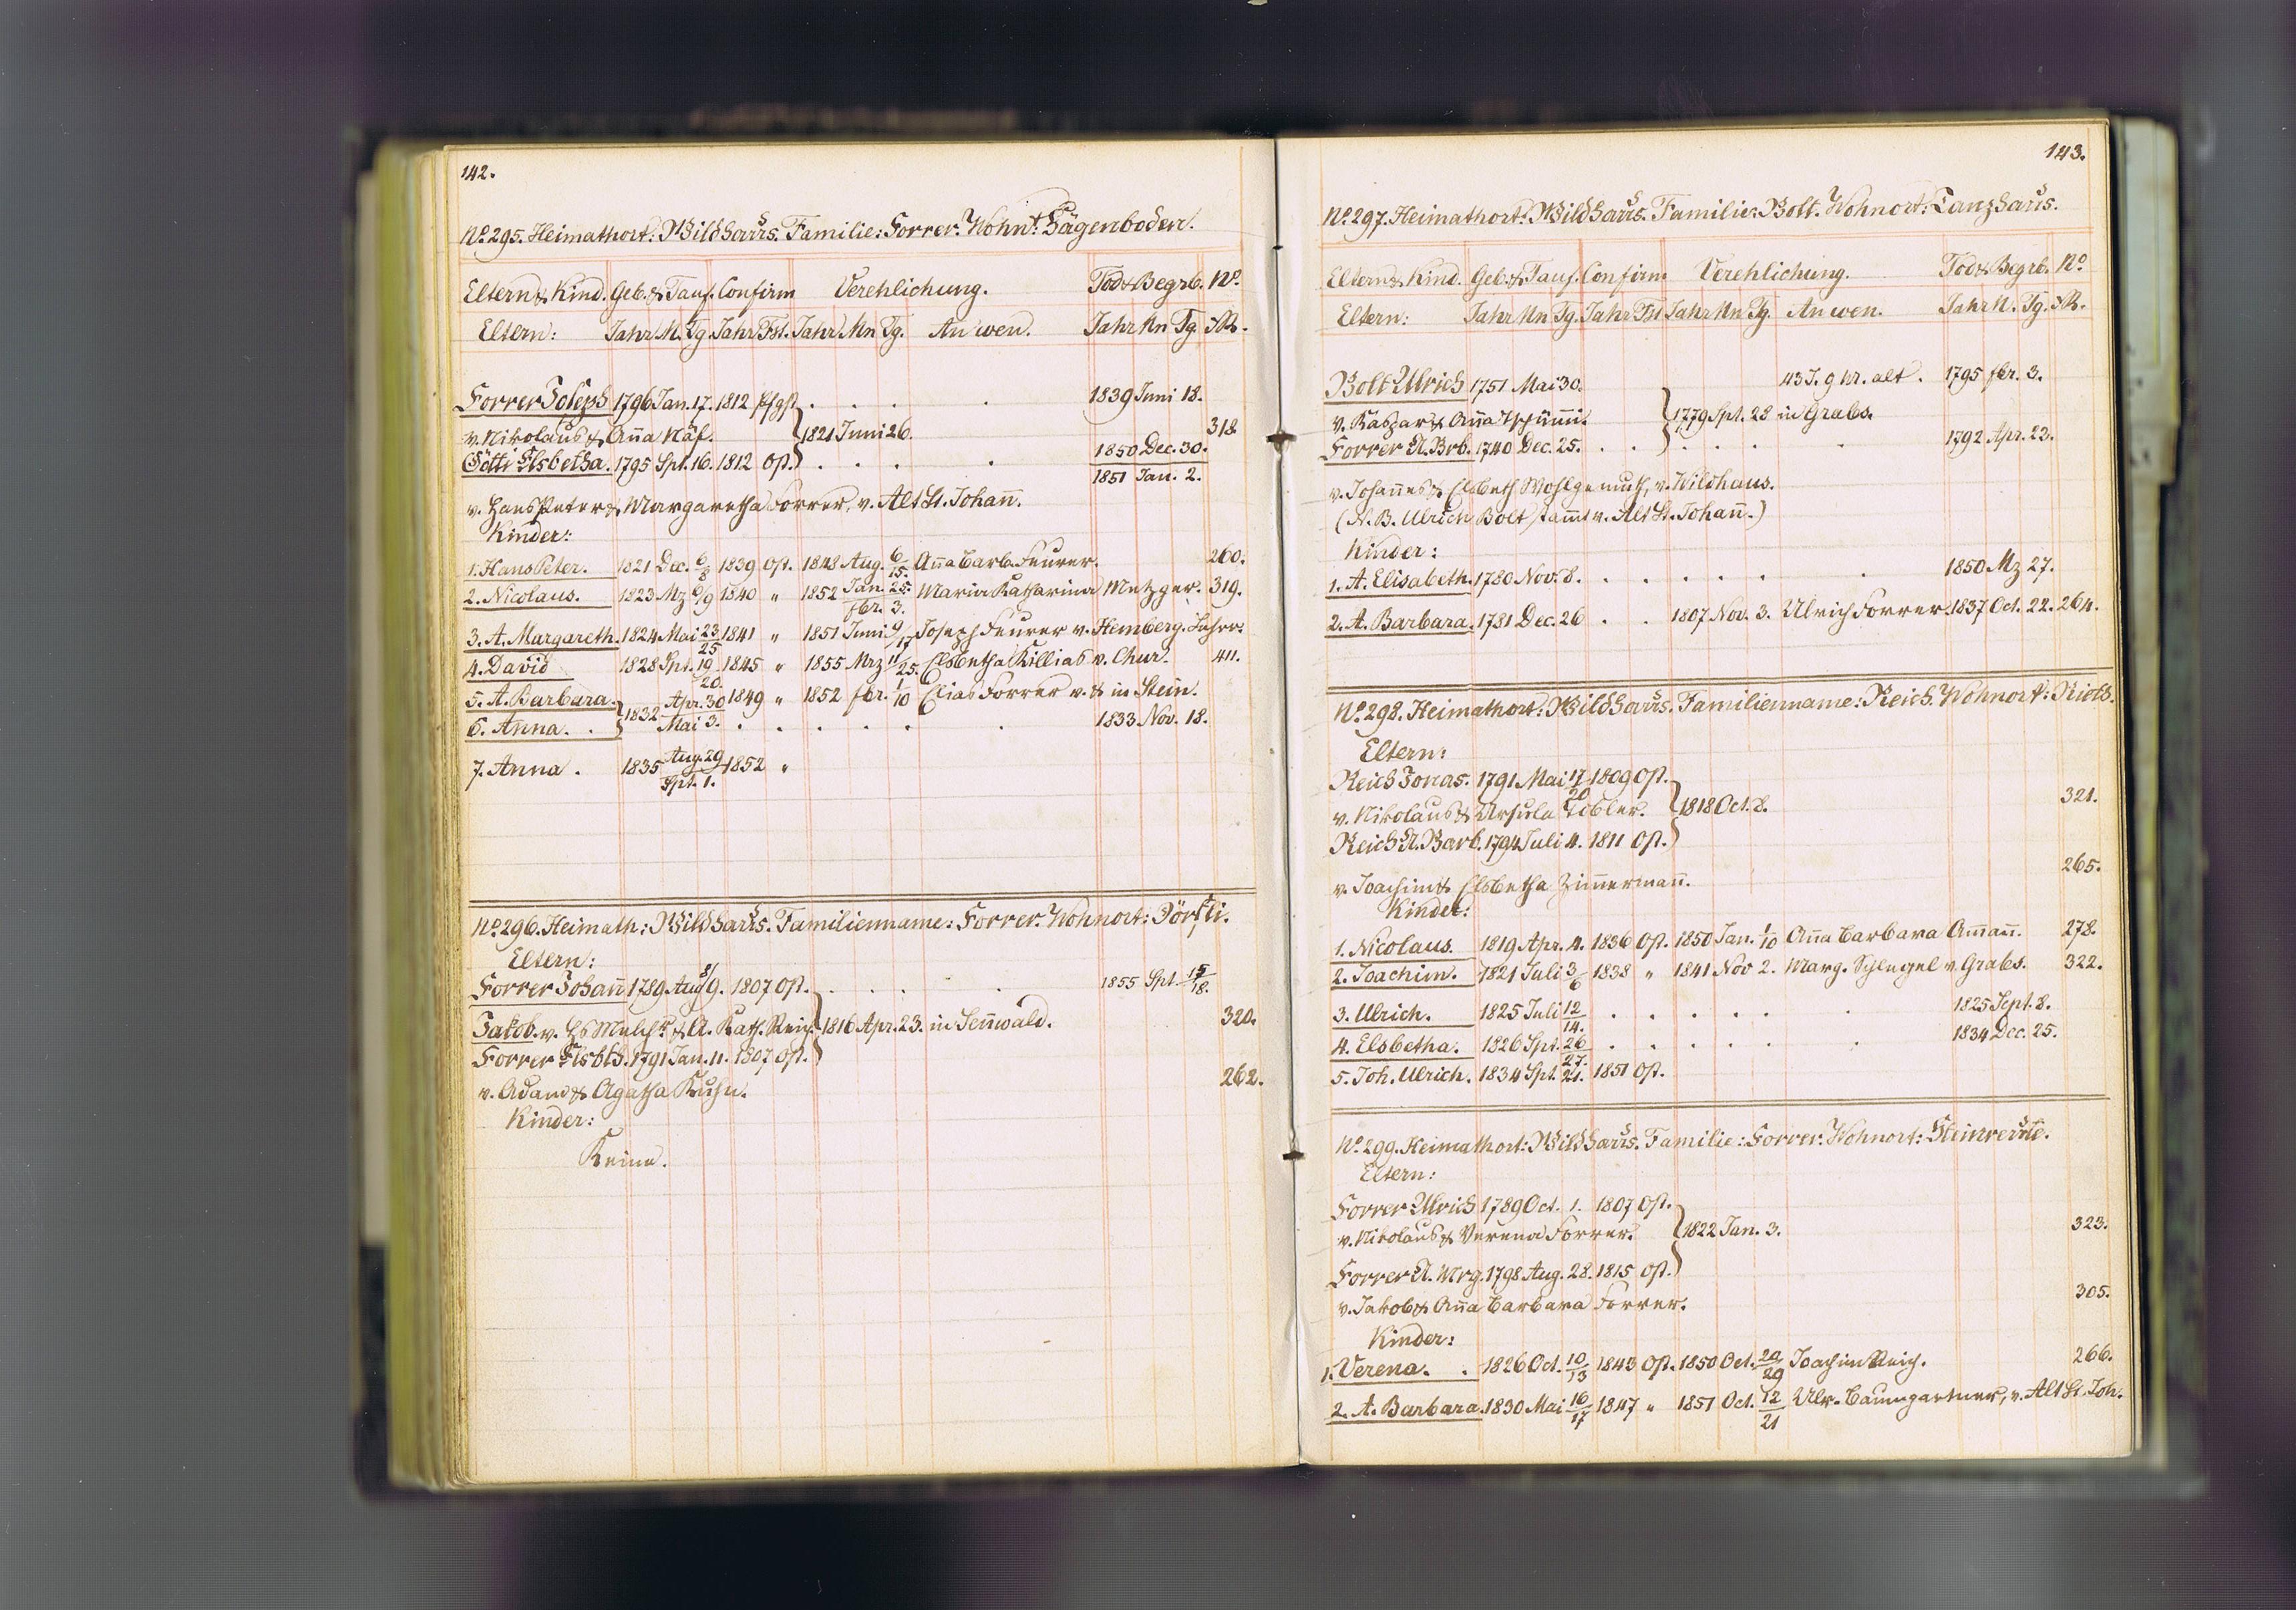 142.
No. 295. Heimathort: Wildhaus. Familie: Forrer. Wohnt: Sägenboden.
Eltern & Kind. Geb. & Tauf. Confirm Verehlichung. Tod & Begrb. No.
Eltern: Jahr M. Tg. Jahr Fst. Jahr Mn Tg. An wen. Jahr Mn Tg.
Forrer Joseph 1796 Jan. 17. 1812 Pfgst. . . . 1839 Juni 18.
v. Nikolaus & Aña Näf. 1821 Juni 26. 318
Götti Elsbetha. 1795 Spt. 16. 1812 Ost. . . . 1850 Dec. 30.
1851 Jan. 2.
v. Hans Peter & Margaretha Forrer, v. Alt St. Johañ.
Kinder:
1. Hans Peter. 1821 Dec. 6/8 1839 Ost. 1848 Aug. 6/15. Aña Barb. Feurer. 260.
2. Nicolaus. 1823 Mz 6/9 1840 " 1852 Jan. 25. / fbr. 3. Maria Katharina Metzger. 319.
3. A. Margareth. 1824 Mai 23/25 1841 " 1851 Juni 9/17 Joseph Feurer v. Hemberg.
4. David 1828 Spt. 19/20. 1845 " 1855 Mrz 11/25. Elsbetha Killias v. Chur. 411.
5. A. Barbara. 1832 Apr. 30 / Mai 3. 1849 " 1852 fbr. 1/10 Elias Forrer v. & in Stein.
6. Anna. . . . . . . 1833 Nov. 18.
7. Anna. 1835 Aug. 29 / Spt. 1. 1852 "
No. 296. Heimath: Wildhaus. Familienname: Forrer. Wohnort: Dörfli.
Eltern:
Forrer Johañ 1789 Aug 8/9. 1807 Ost. . . . 1855 Spt. 15/18.
Jakob. v. Hs Melchr & A. Kath. Reich. 1816 Apr. 23. in Señwald. 320.
Forrer Elsbth. 1791 Jan. 11. 1807 Ost.
v. Adam & Agatha Kuhn. 262.
Kinder:
Keine.
143.
No. 297. Heimathort: Wildhaus. Familie: Bolt. Wohnort: Tanzhaus.
Eltern & Kind. Geb. & Tauf. Confirm Verehlichung. Tod & Begrb. No.
Eltern: Jahr Mn Tg. Jahr Fst Jahr Mn Tg. An wen. Jahr M. Tg.
Bolt Ulrich 1751 Mai 30. 43 J. 9 M. alt. 1795 fbr. 3.
v. Kaspar & Aña 1779 Spt. 28 in Grabs.
Forrer A. Brb. 1740 Dec. 25. . . . . 1792 Apr. 23.
v. Johañes & Elsbeth Wohlgemuth, v. Wildhaus.
(N. B. Ulrich Bolt stamt v. Alt St. Johañ.)
Kinder:
1. A. Elisabeth. 1780 Nov. 8. . . . . . 1850 Mz 27.
2. A. Barbara. 1781 Dec. 26 . . 1807 Nov. 3. Ulrich Forrer. 1837 Oct. 22. 264.
No. 298. Heimathort: Wildhaus. Familienname: Reich. Wohnort: Rieth.
Eltern:
Reich Jonas. 1791 Mai 17/20 1809 Ost.
v. Nikolaus & Ursula Tobler. 1818 Oct. 8. 321.
Reich A. Barb. 1794 Juli 4. 1811 Ost.
v. Joachim & Elsbetha Zimmermañ. 265.
Kinder:
1. Nicolaus. 1819 Apr. 4. 1836 Ost. 1850 Jan. 1/10 Aña Barbara Amañ. 278.
2. Joachim. 1821 Juli 3/6 1838 " 1841 Nov 2. Marg. Schlegel v. Grabs. 322.
3. Ulrich. 1825 Juli 12/14. . . . . . 1825 Sept. 8.
4. Elsbetha. 1826 Spt. 26/27. . . . . . 1834 Dec. 25.
5. Joh. Ulrich. 1834 Spt. 21. 1851 Ost.
No. 299. Heimathort: Wildhaus. Familie: Forrer. Wohnort: Steinreute.
Eltern:
Forrer Ulrich 1789 Oct. 1. 1807 Ost.
v. Nikolaus & Verena Forrer. 1822 Jan. 3. 323.
Forrer A. Mrg. 1798 Aug. 28. 1815 Ost.
v. Jakob & Aña Barbara Forrer. 305.
Kinder:
1. Verena. . 1826 Oct. 10/13 1843 Ost. 1850 Oct. 20/29 Joachim Reich. 266.
2. A. Barbara. 1830 Mai 16/17 1847 " 1851 Oct. 12/21 Ulr. Baumgartner, v. Alt St. Joh.